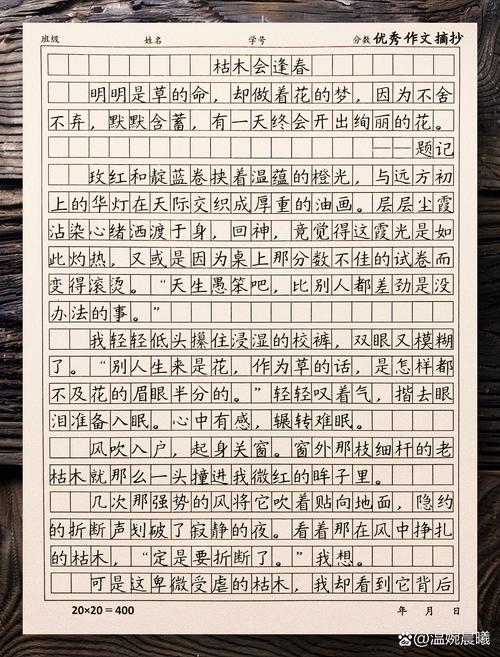 班级 姓名 学号 分数 优秀作文摘抄
枯木会逢春
明明是草的命，却做着花的梦，因为不舍
不弃，默默含蓄，有一天终会开出绚丽的花。
——题记
玫红和靛蓝卷挟着温蕴的橙光，与远方初
上的华灯在天际交织成厚重的油画。层层尘霞
沾染心绪洒渡于身，回神，竟觉得这霞光是如
此灼热，又或是因为桌上那分数不佳的试卷而
变得滚烫。“天生愚笨吧，比别人都差劲是没
办法的事。”
我轻轻低头攥住浸湿的校裤，双眼又模糊
了。“别人生来是花，作为草的话，是怎样都
不及花的眉眼半分的。”轻轻叹着气，揩去眼
泪准备入眠。心中有感，辗转难眠。
风吹入户，起身关窗。窗外那枝细杆的老
枯木就那么一头撞进我微红的眸子里。
几次那强势的风将它吹着贴向地面，隐约
的折断声划破了寂静的夜。看着那在风中挣扎
的枯木，“定是要折断了。”我想。
可是这卑微受虐的枯木，我却看到它背后
20×20=400 年 月 日
@温婉晨曦